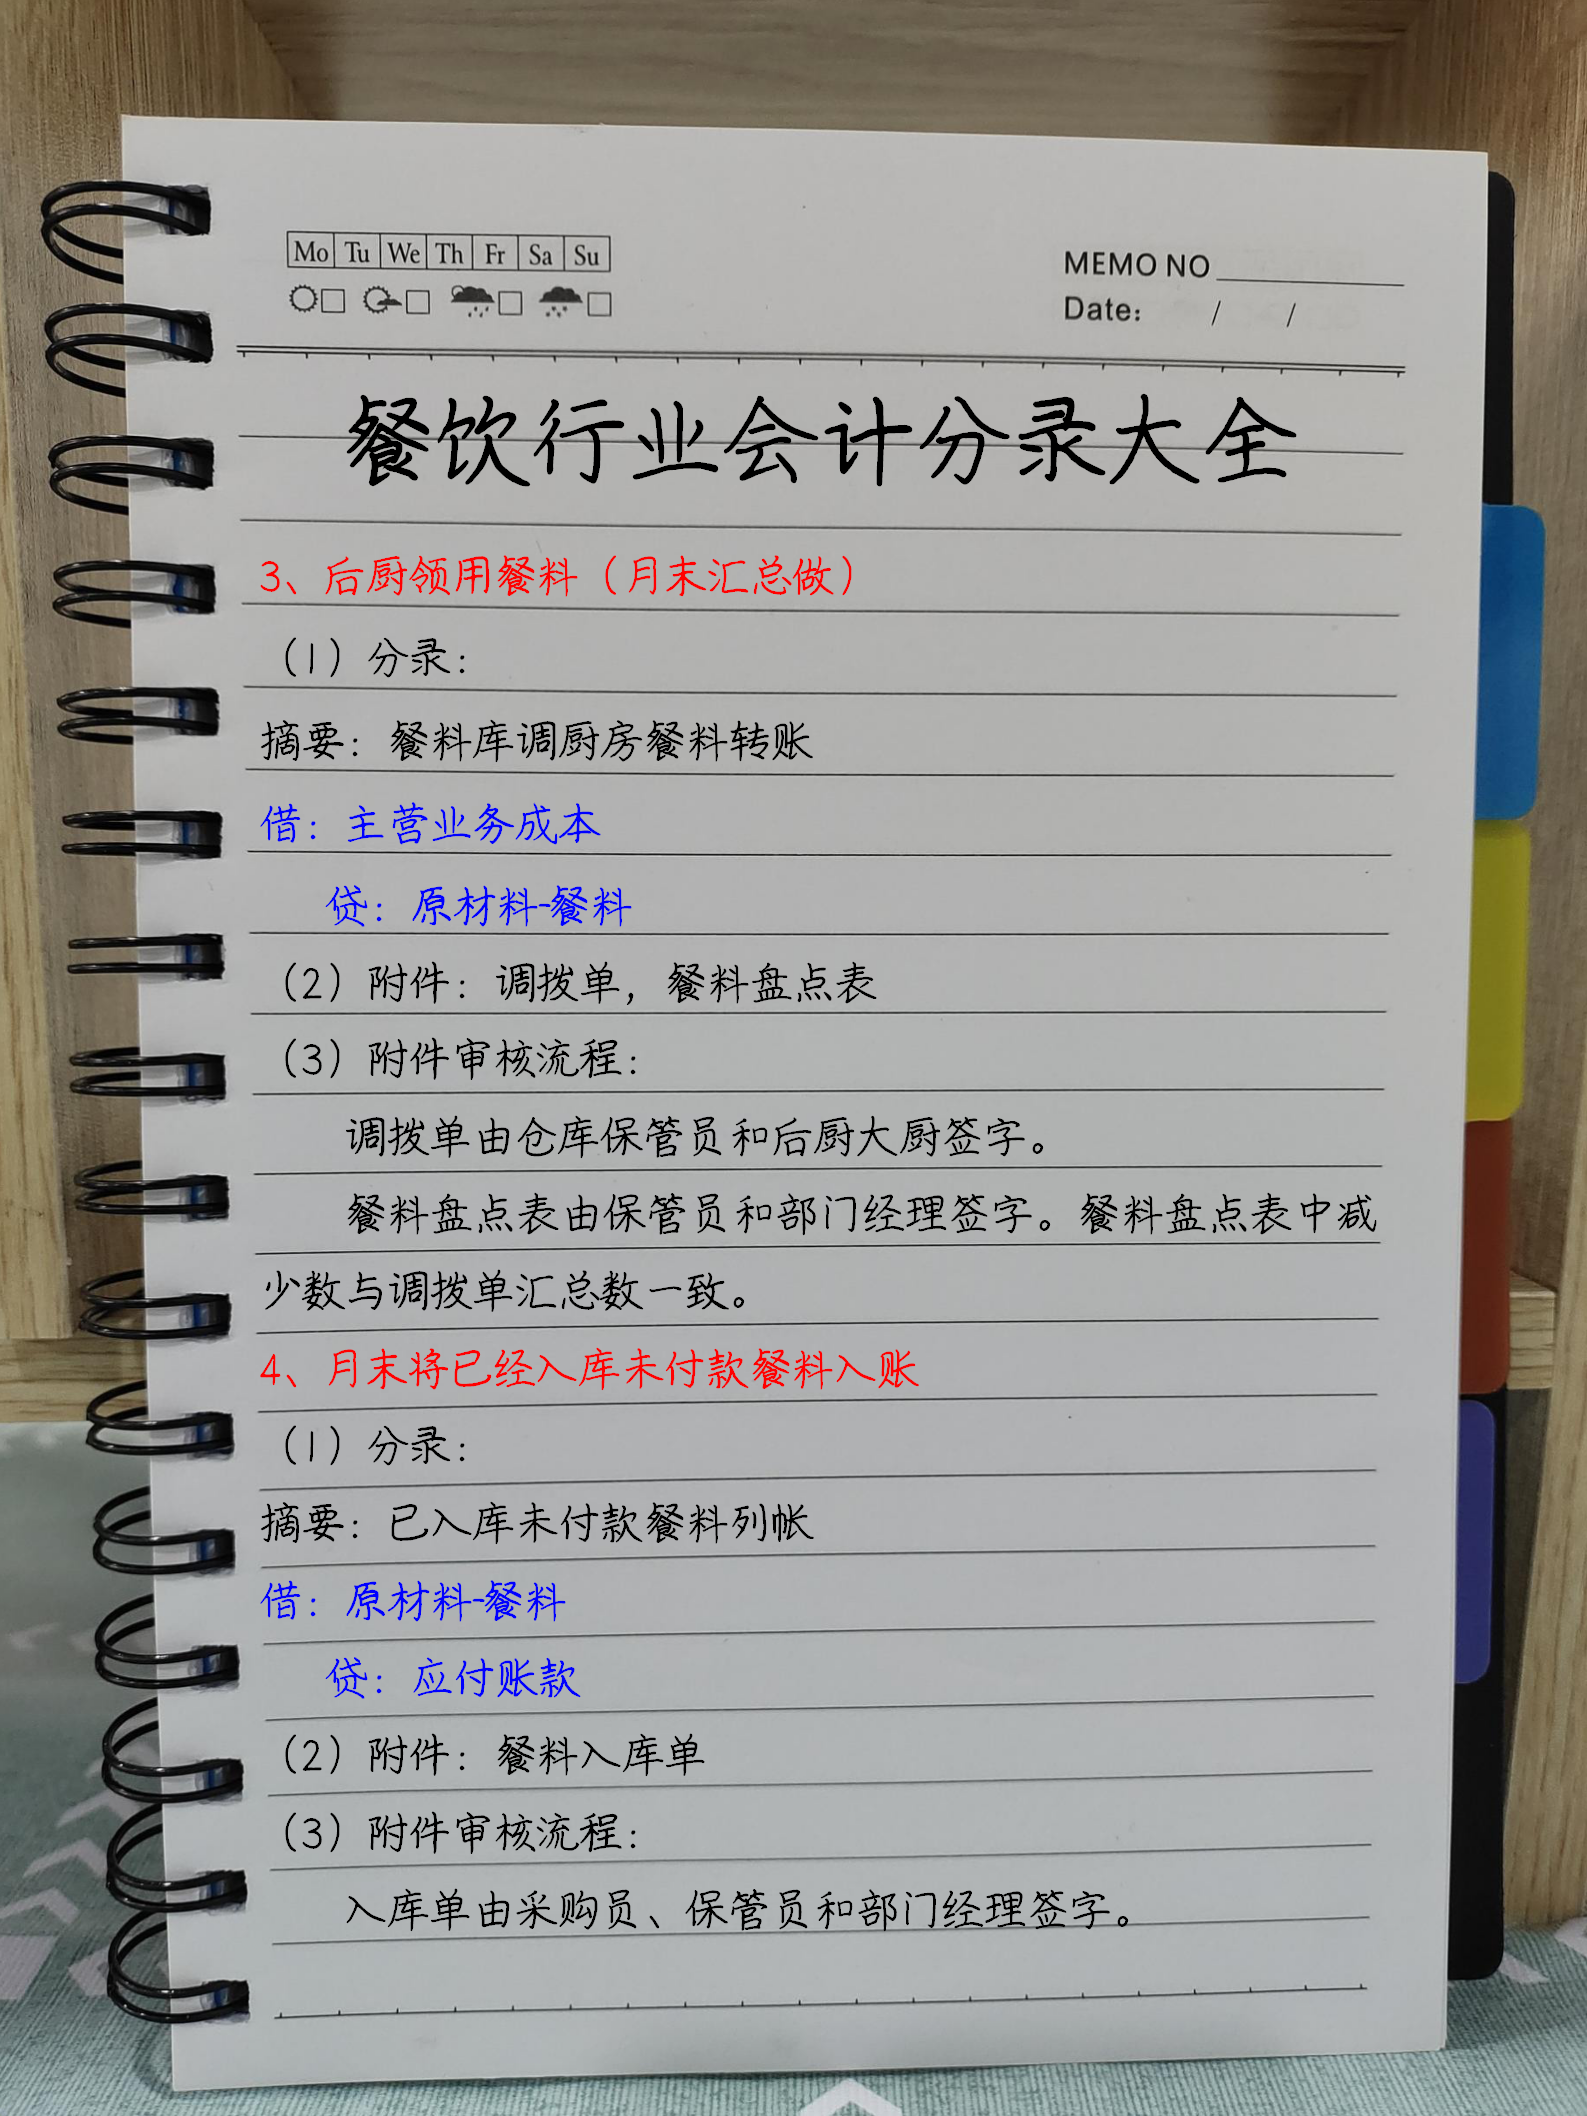 Mo Tu We Th Fr Sa Su
MEMO NO
Date: / /
餐饮行业会计分录大全
3、后厨领用餐料（月末汇总做）
（1）分录：
摘要：餐料库调厨房餐料转账
借：主营业务成本
贷：原材料-餐料
（2）附件：调拨单，餐料盘点表
（3）附件审核流程：
调拨单由仓库保管员和后厨大厨签字。
餐料盘点表由保管员和部门经理签字。餐料盘点表中减
少数与调拨单汇总数一致。
4、月末将已经入库未付款餐料入账
（1）分录：
摘要：已入库未付款餐料列帐
借：原材料-餐料
贷：应付账款
（2）附件：餐料入库单
（3）附件审核流程：
入库单由采购员、保管员和部门经理签字。